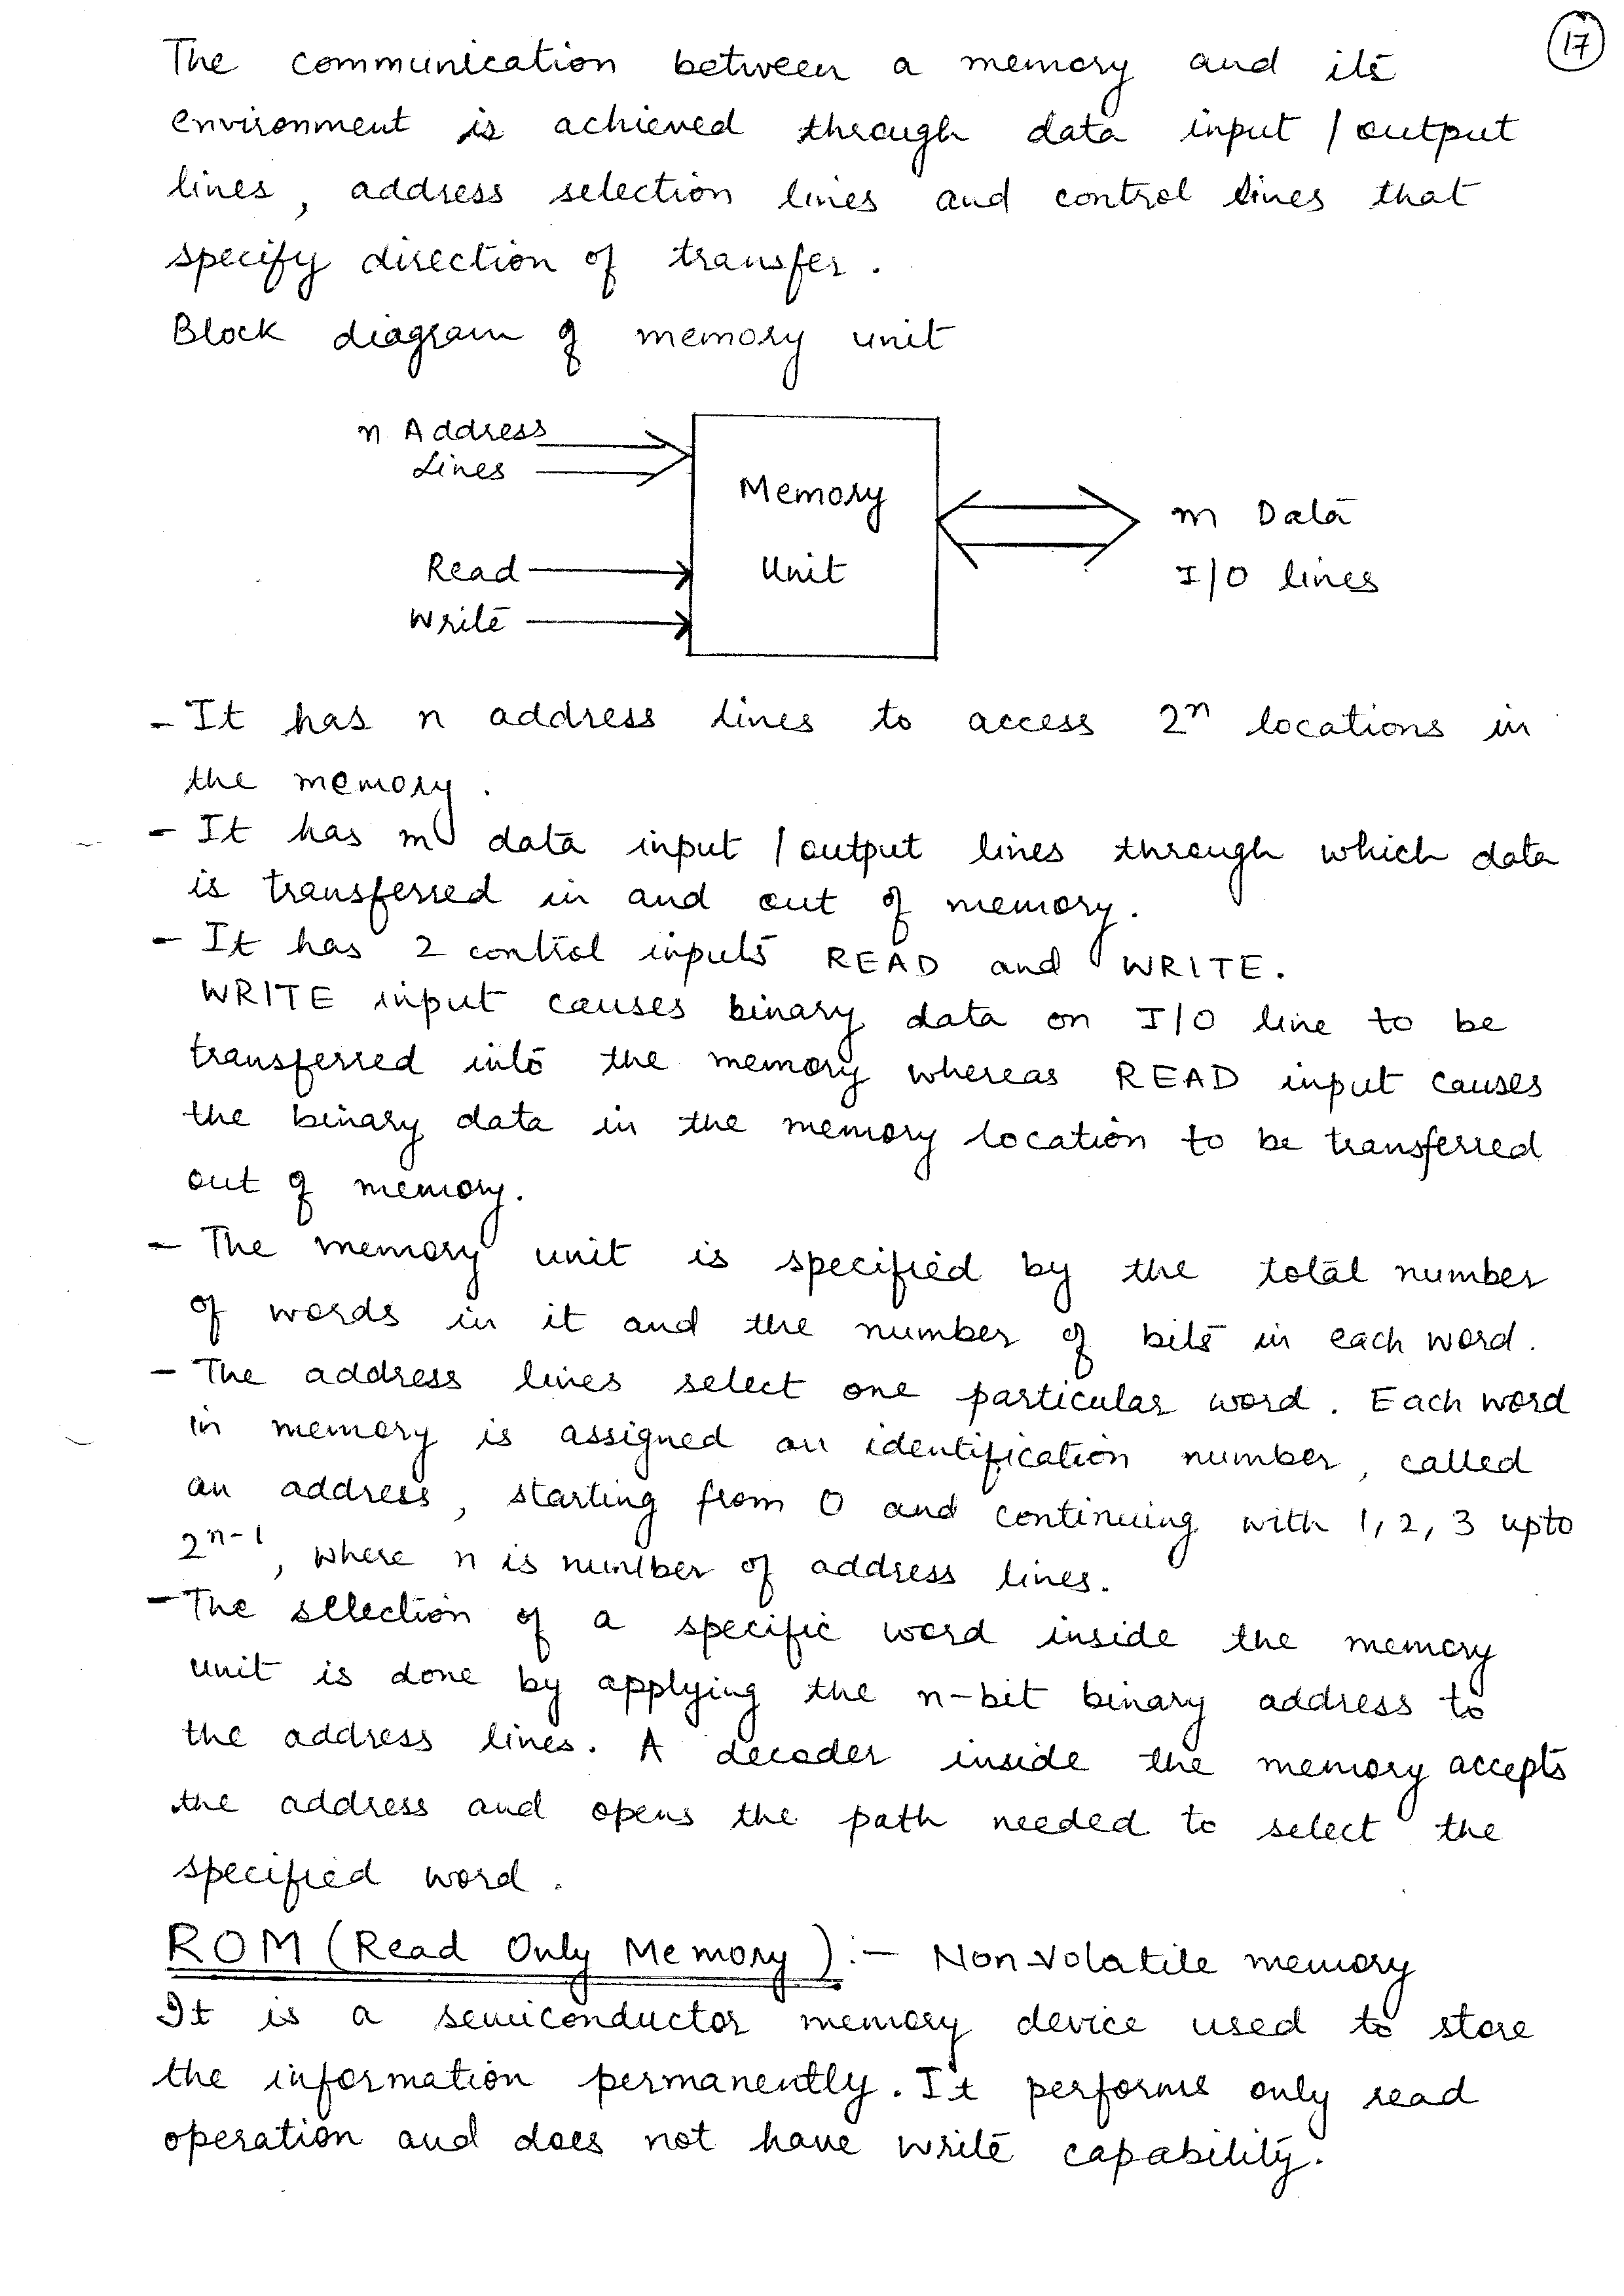 17
The communication between a memory and its
environment is achieved through data input / output
lines, address selection lines and control lines that
specify direction of transfer.
Block diagram of memory unit
n Address
Lines
Memory
Unit
Read
Write
m Data
I/O lines
- It has n address lines to access 2ⁿ locations in
the memory.
- It has m data input / output lines through which data
is transferred in and out of memory.
- It has 2 control inputs READ and WRITE.
WRITE input causes binary data on I/O line to be
transferred into the memory whereas READ input causes
the binary data in the memory location to be transferred
out of memory.
- The memory unit is specified by the total number
of words in it and the number of bits in each word.
- The address lines select one particular word. Each word
in memory is assigned an identification number, called
an address, starting from 0 and continuing with 1, 2, 3 upto
2ⁿ⁻¹, where n is number of address lines.
- The selection of a specific word inside the memory
unit is done by applying the n-bit binary address to
the address lines. A decoder inside the memory accepts
the address and opens the path needed to select the
specified word.
ROM (Read Only Memory) :- Non Volatile memory
It is a semiconductor memory device used to store
the information permanently. It performs only read
operation and does not have write capability.